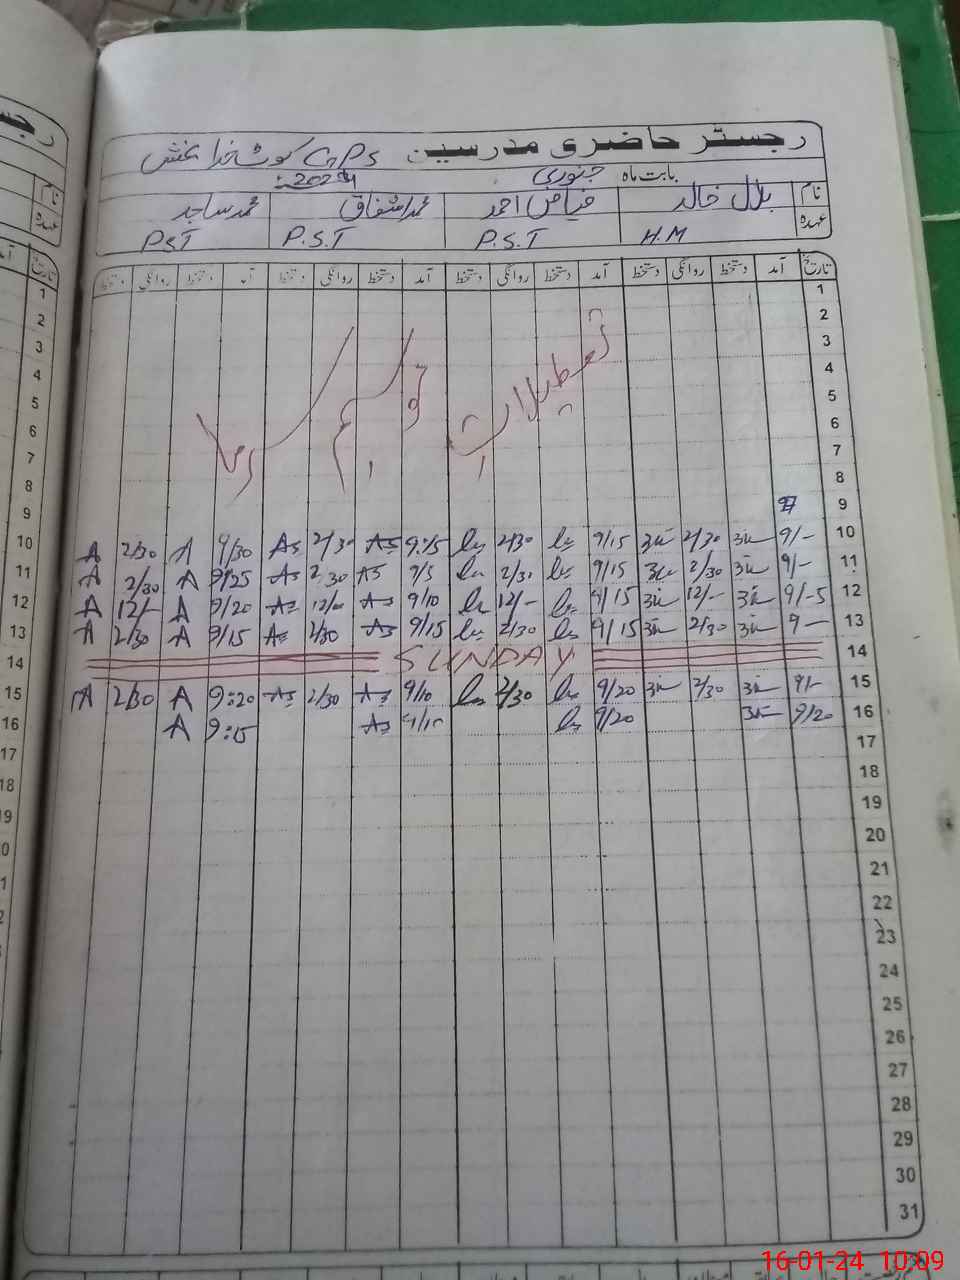 رجسٹر حاضری مدرسین GPS کوٹ خدا بخش
بابت ماہ جنوری 2024ء
نام بلال خالد فیاض احمد محمد اشفاق محمد ساجد
عہدہ H.M P.S.T P.S.T PST
تاریخ آمد دستخط روانگی دستخط آمد دستخط روانگی دستخط آمد دستخط روانگی دستخط آمد دستخط روانگی دستخط
1
2
3
4
5
6
7
8
9
تعطیلات موسم سرما
10 9/- 2/30 9/15 2/30 9:15 2/30 A 9/30 A 2/30
11 9/- 2/30 9/15 2/30 9/5 2/30 A 9/25 A 2/30
12 9/-5 12/- 9/15 12/- 9/10 12/- A 9/20 A 12/-
13 9- 2/30 9/15 2/30 9/15 2/30 A 9/15 A 2/30
14 SUNDAY
15 9/- 2/30 9/20 2/30 9/10 2/30 A 9:20 A 2/30
16 9/20 9/20 9/10 A 9:15
17
18
19
20
21
22
23
24
25
26
27
28
29
30
31
16-01-24 10:09